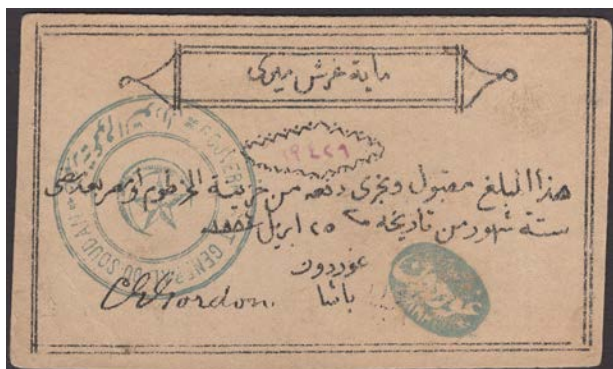 ماية غرش ميري
١٩٤٢٩
هذا المبلغ مقبول ويجرى دفعه من خزينة الخرطوم او مصر بعد مضى
ستة شهور من تاريخه ٢٥ ابريل ١٨٨٤
غوردون
باشا
C G Gordon
GOUVERNEMENT GENERAL DU SOUDAN